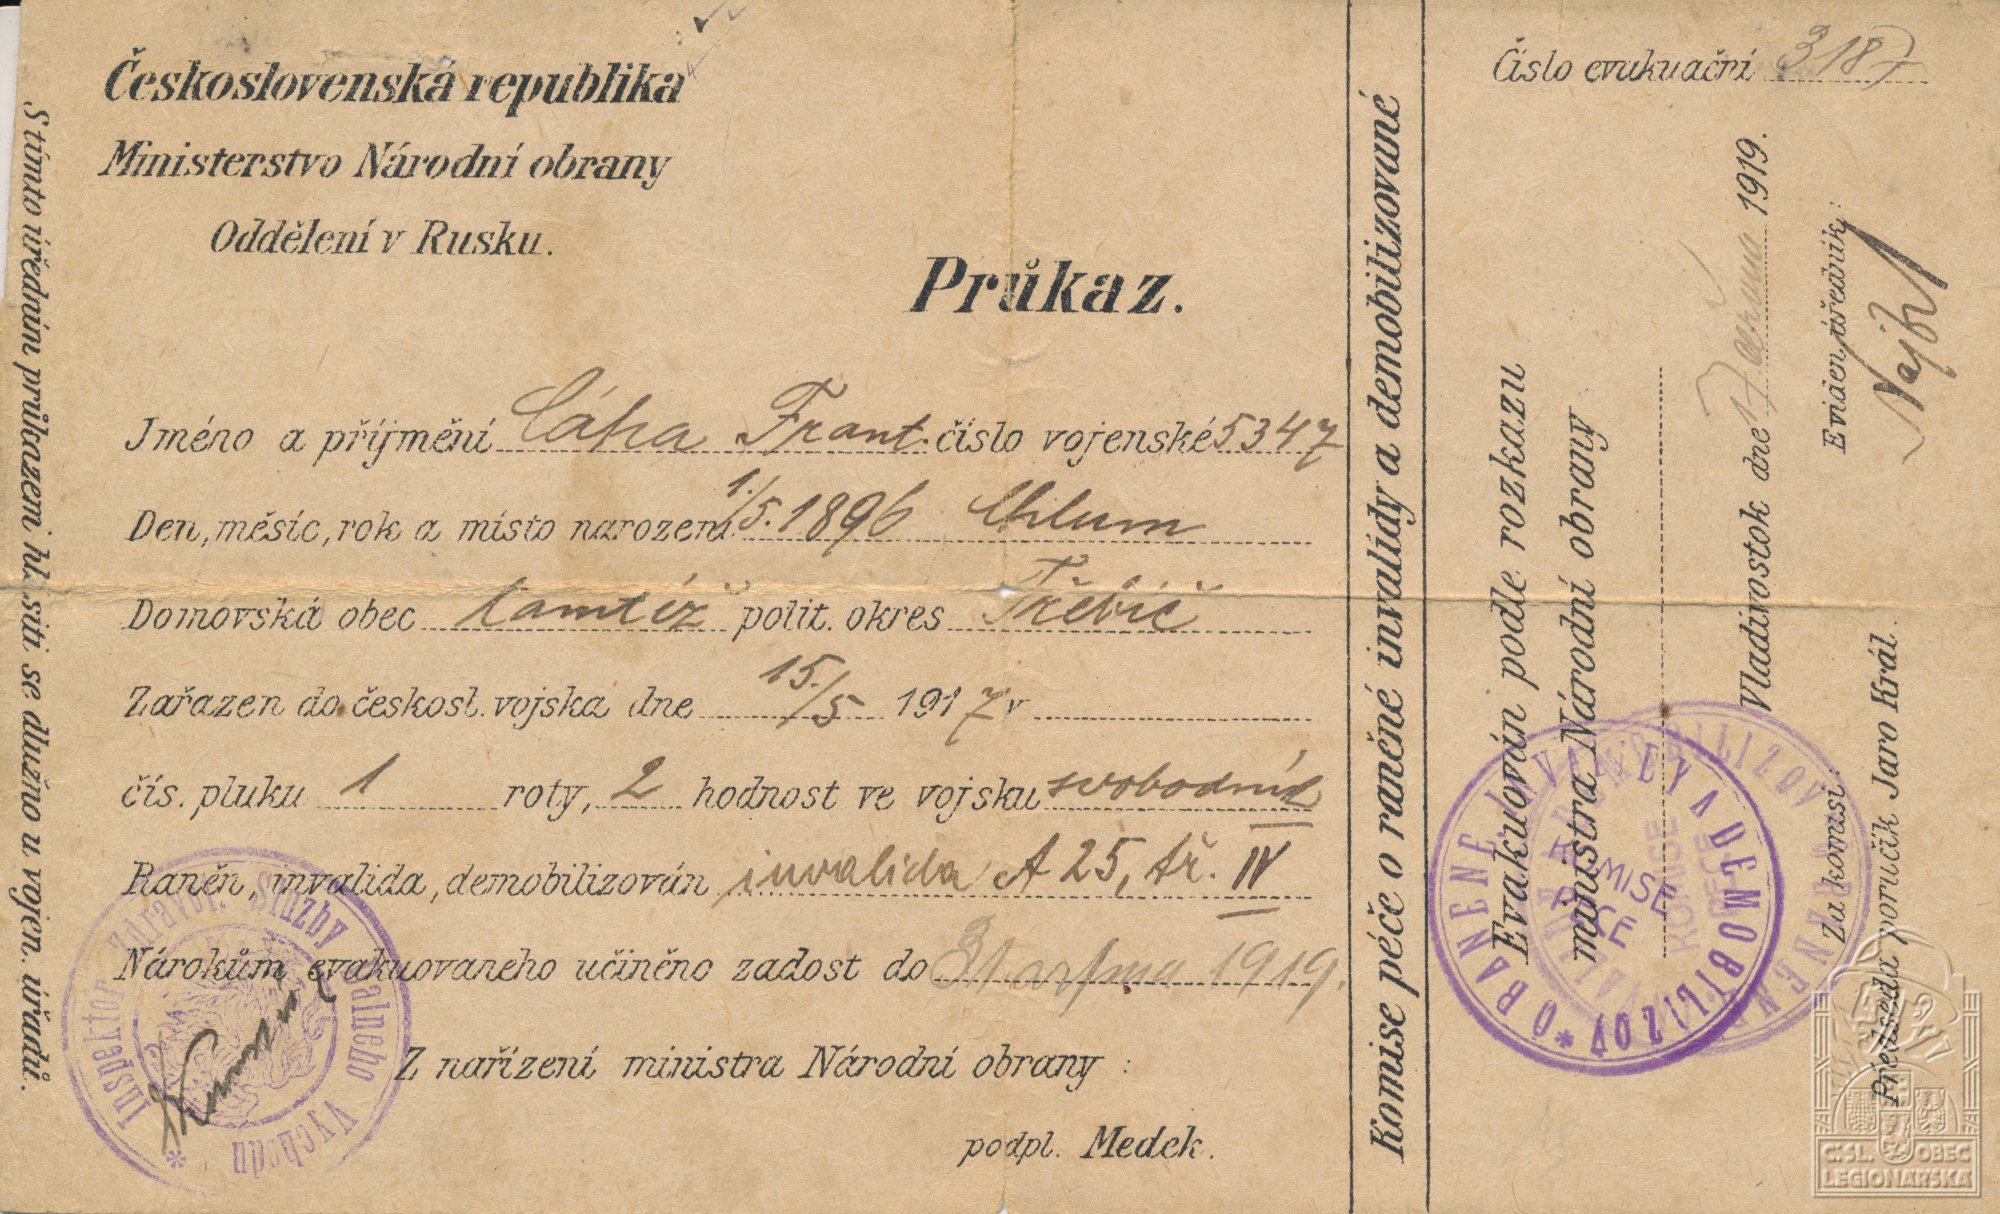 Československá republika
Ministerstvo Národní obrany
Oddělení v Rusku.
Průkaz.
Jméno a příjmení Cáha Frant. číslo vojenské 5347
Den, měsíc, rok a místo narození 1./5. 1896 Chlum
Domovská obec tamtéž polit. okres Třebíč
Zařazen do českosl. vojska dne 15./5 1917 v
čís. pluku 1 roty, 2 hodnost ve vojsku svobodník
Raněn, invalida, demobilizován invalida A 25, tř. IV
Nárokům evakuovaneho učiněno zadost do 31. srpna 1919.
Z nařízení ministra Národní obrany:
podpl. Medek.
S tímto úředním průkazem hl. siti se dlužno u vojen. úřadů.
Inspektor Zdravot. Služby Dalného Východu
Komise péče o raněné invalidy a demobilizované
Číslo evakuační 3187
Evakuován podle rozkazu
ministra Národní obrany
Vladivostok dne 17 června 1919.
Eviden. úředník:
Za komisi:
Předseda poručík Jaro Král.
KOMISE PÉČE O RANĚNÉ, INVALIDY A DEMOBILIZOV.
Č.SL. OBEC
LEGIONÁŘSKÁ